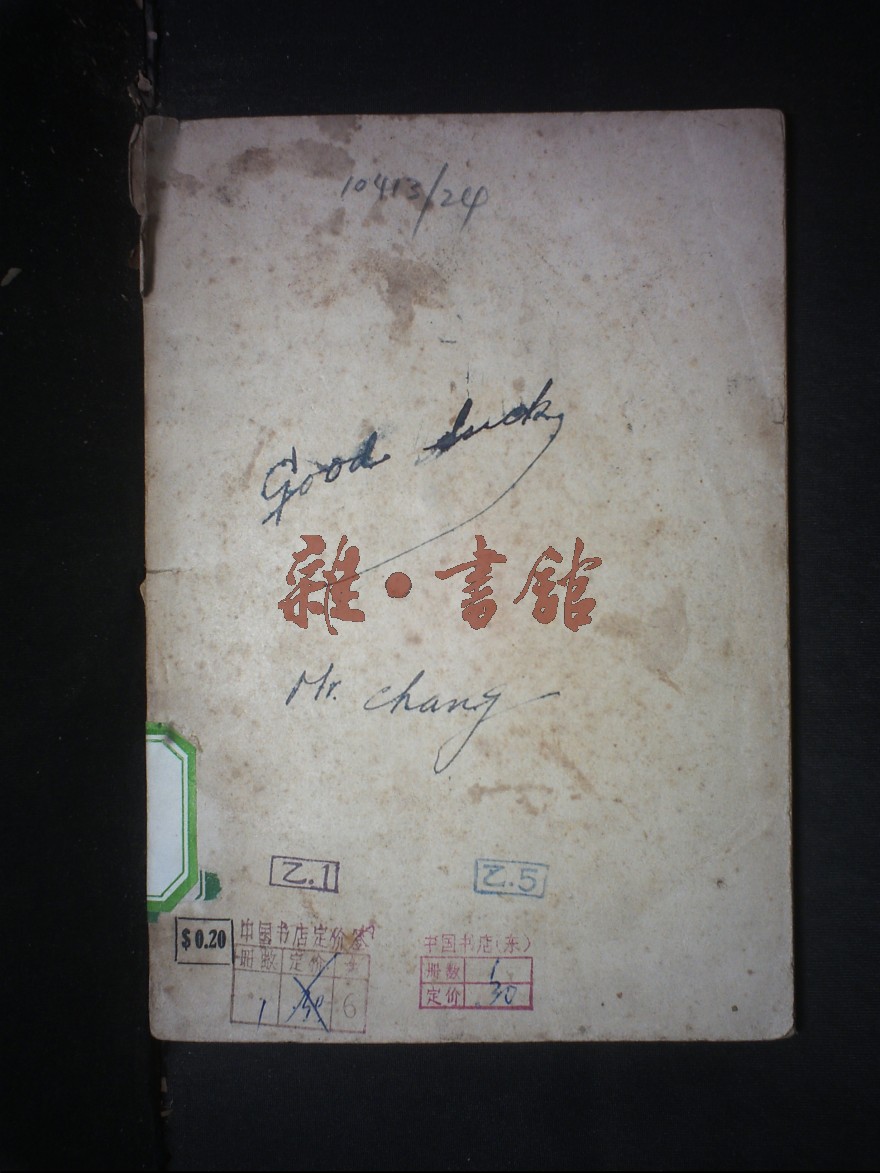 10413/24
Good luck
雜·書館
Mr. Chang
乙.1
乙.5
$0.20
中国书店定价签
册数 定价
1 6
中国书店(东)
册数 1
定价 .30